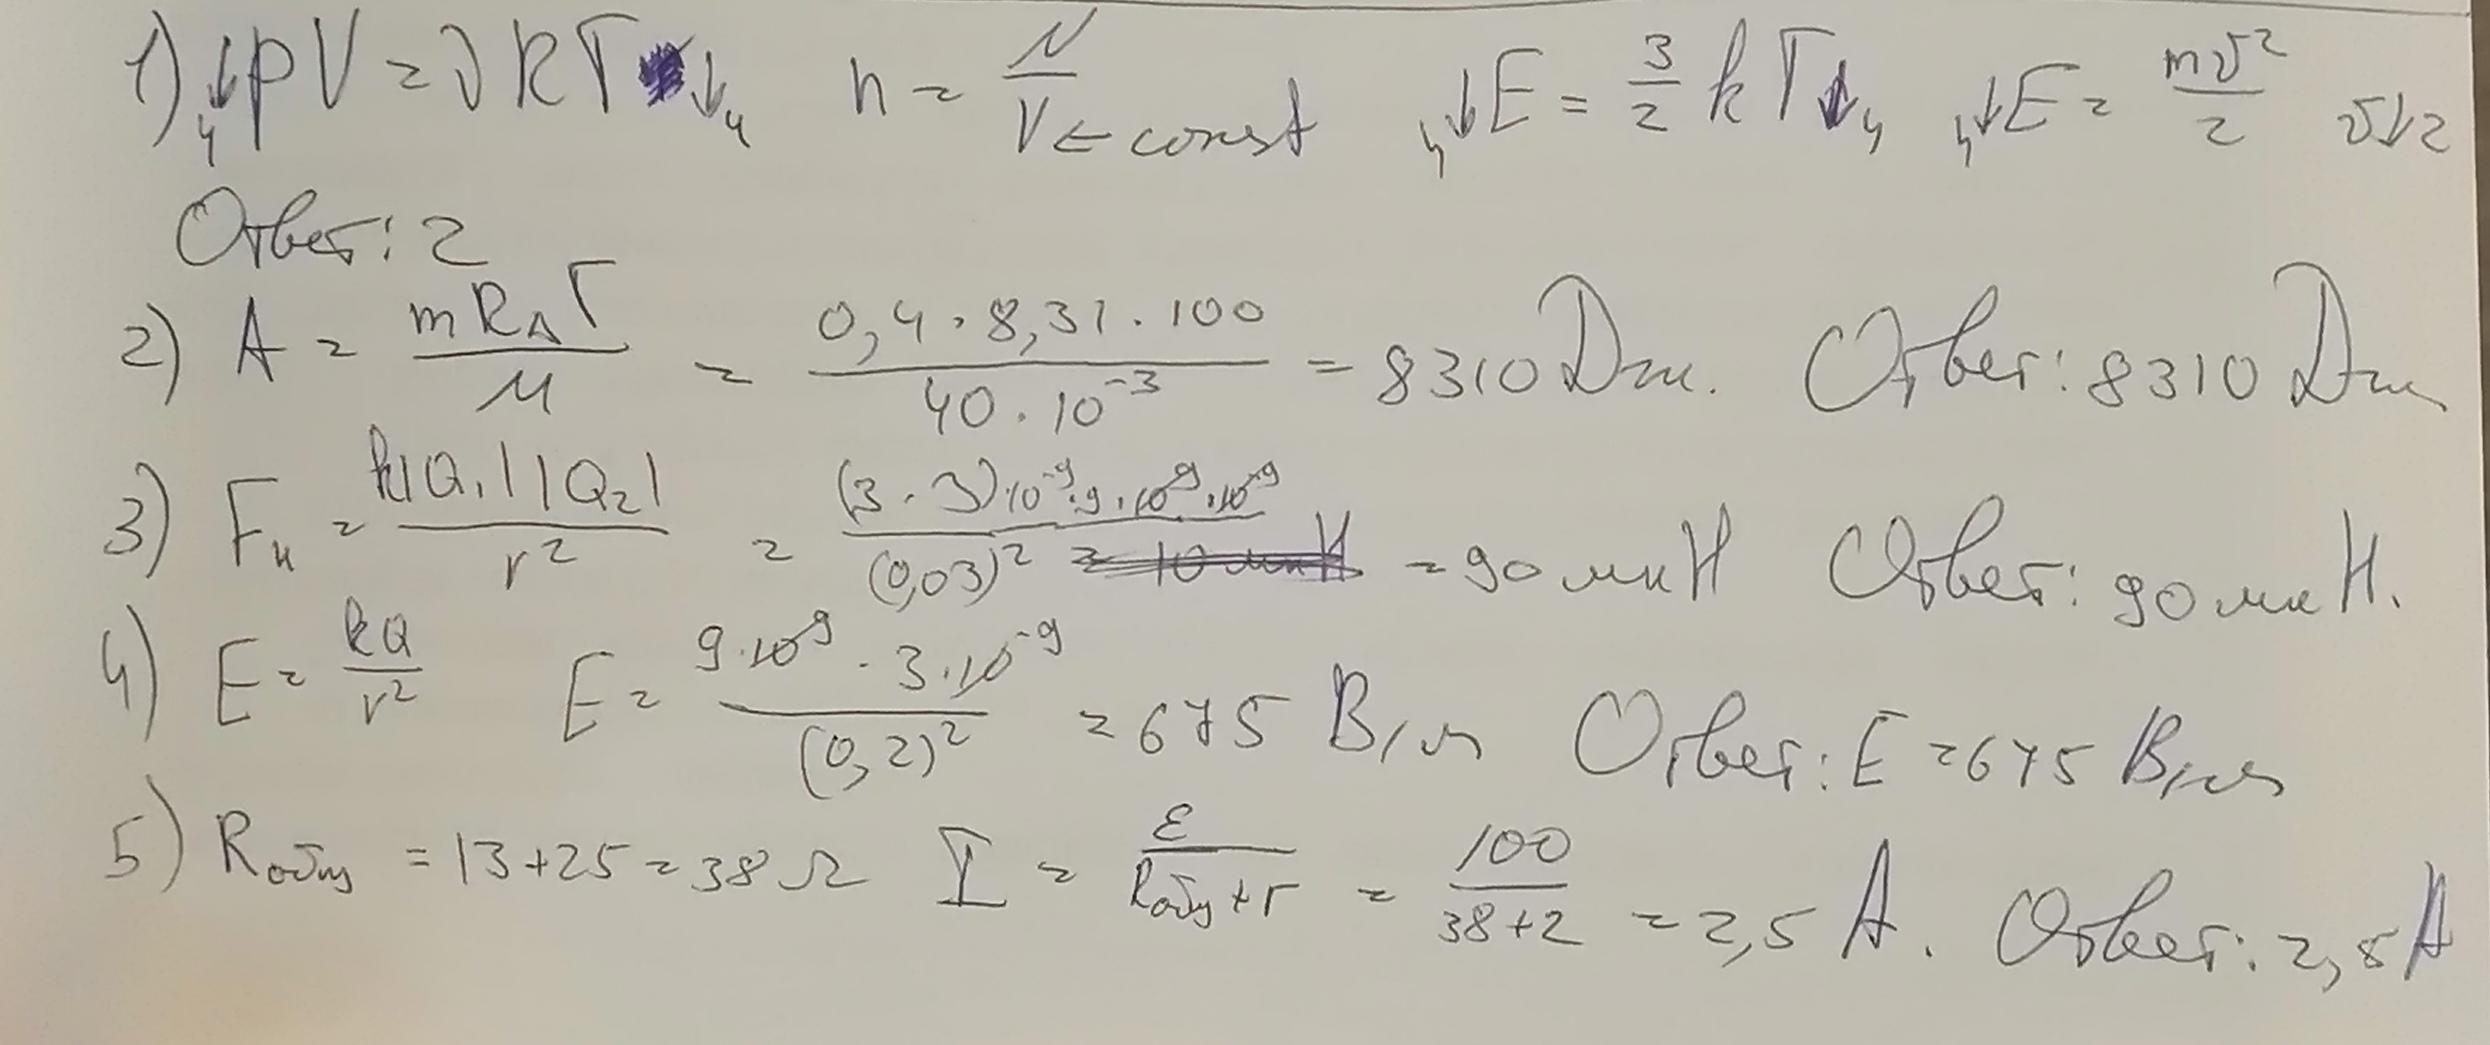 1) ↓4 pV = νRT ↓4 n = N/V ← const ↓4 E = 3/2 kT ↓4 ↓4 E = mv²/2 v↓2
Ответ: 2
2) A = mRΔT/M = 0,4 · 8,31 · 100/40 · 10⁻³ = 8310 Дж. Ответ: 8310 Дж
3) Fк = k|Q₁||Q₂|/r² = (3 · 3) · 10⁻⁹ · 9 · 10⁹ · 10⁻⁹/(0,03)² = 10 мкН = 90 мкН Ответ: 90 мкН.
4) E = kQ/r² E = 9 · 10⁹ · 3 · 10⁻⁹/(0,2)² = 675 В/м Ответ: E = 675 В/м
5) Rобщ = 13 + 25 = 38 Ω I = ε/Rобщ + r = 100/38 + 2 = 2,5 А. Ответ: 2,5 А